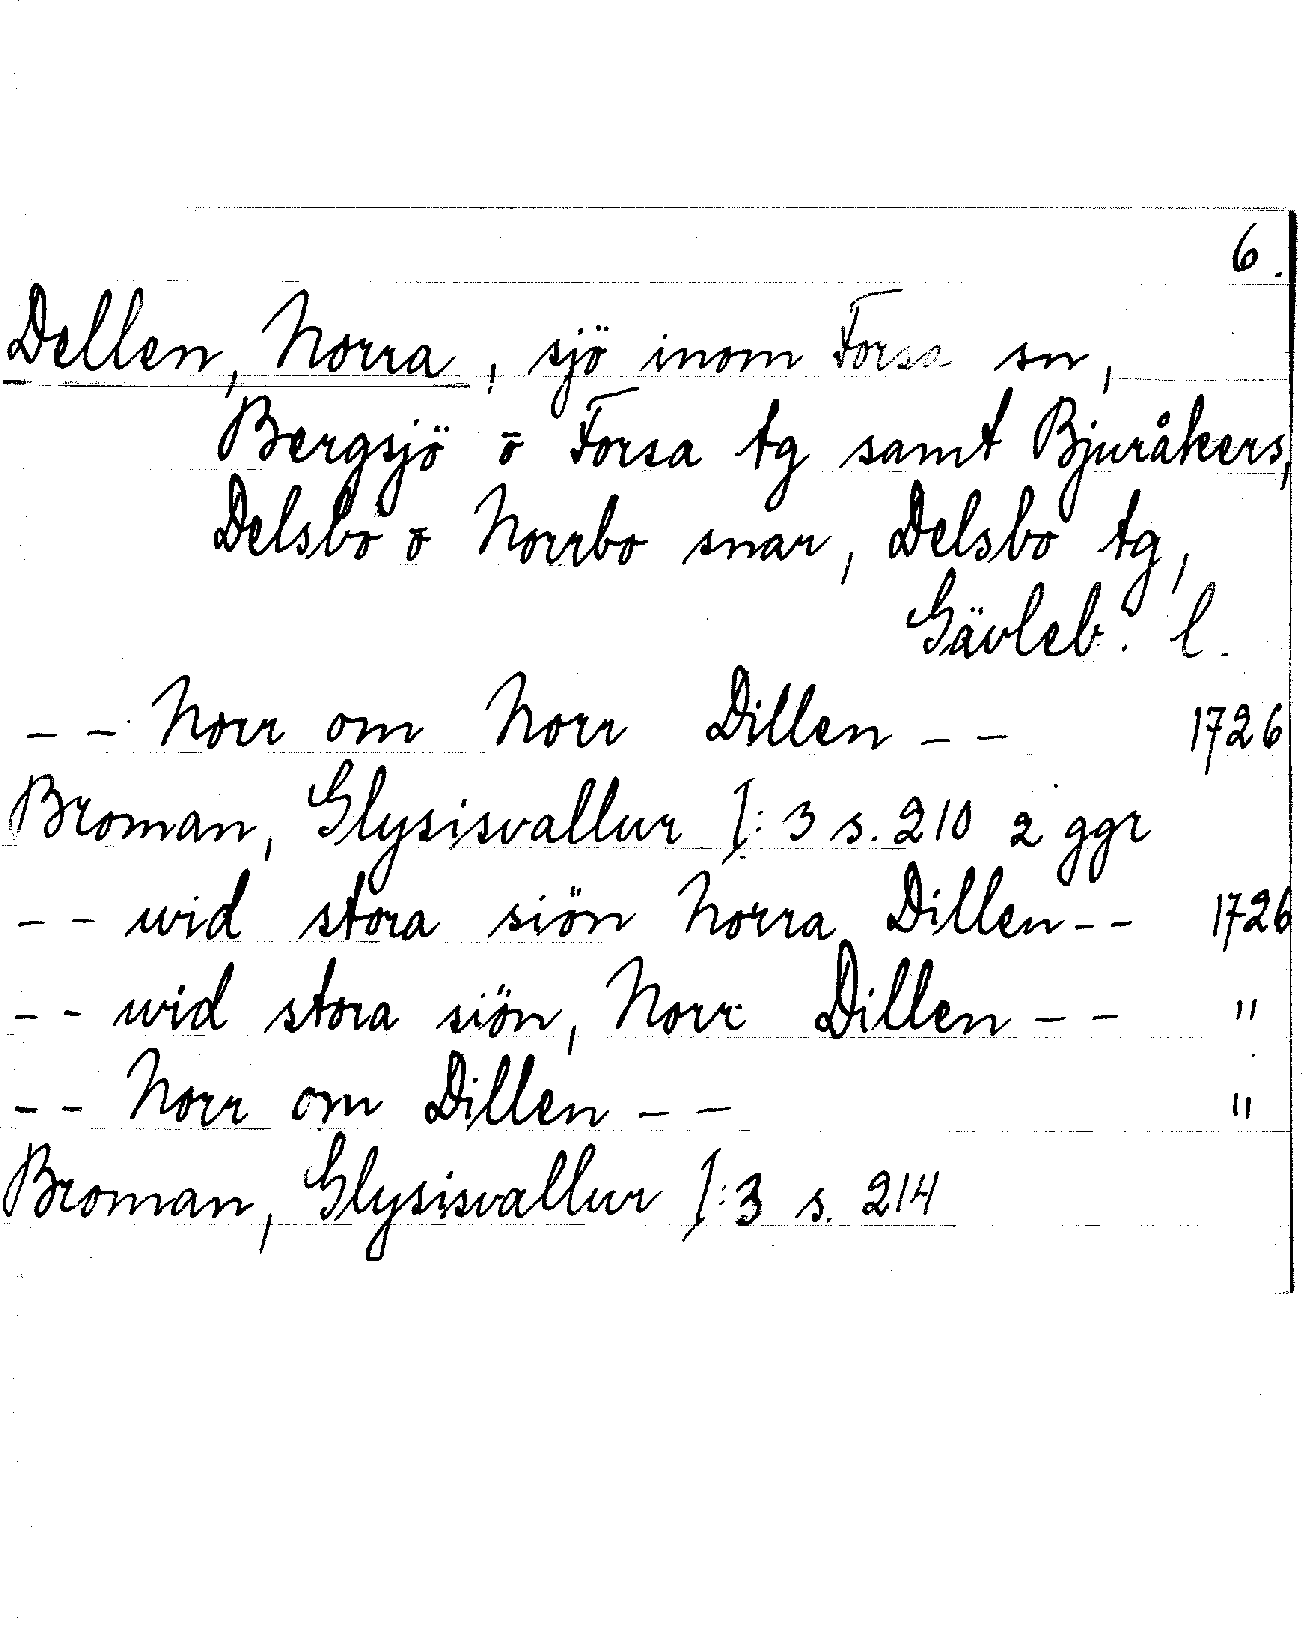 6.
Dellen, Norra, sjö inom Forsa sn,
Bergsjö o Forsa tg samt Bjuråkers,
Delsbo o Norrbo snar, Delsbo tg,
Gävleb. l.
-- Norr om Norr Dillen -- 1726
Broman, Glysisvallur I:3 s. 210 2 ggr
-- wid stora siön Norra Dillen -- 1726
-- wid stora siön, Norr Dillen -- "
-- Norr om Dillen -- "
Broman, Glysisvallur I:3 s. 214